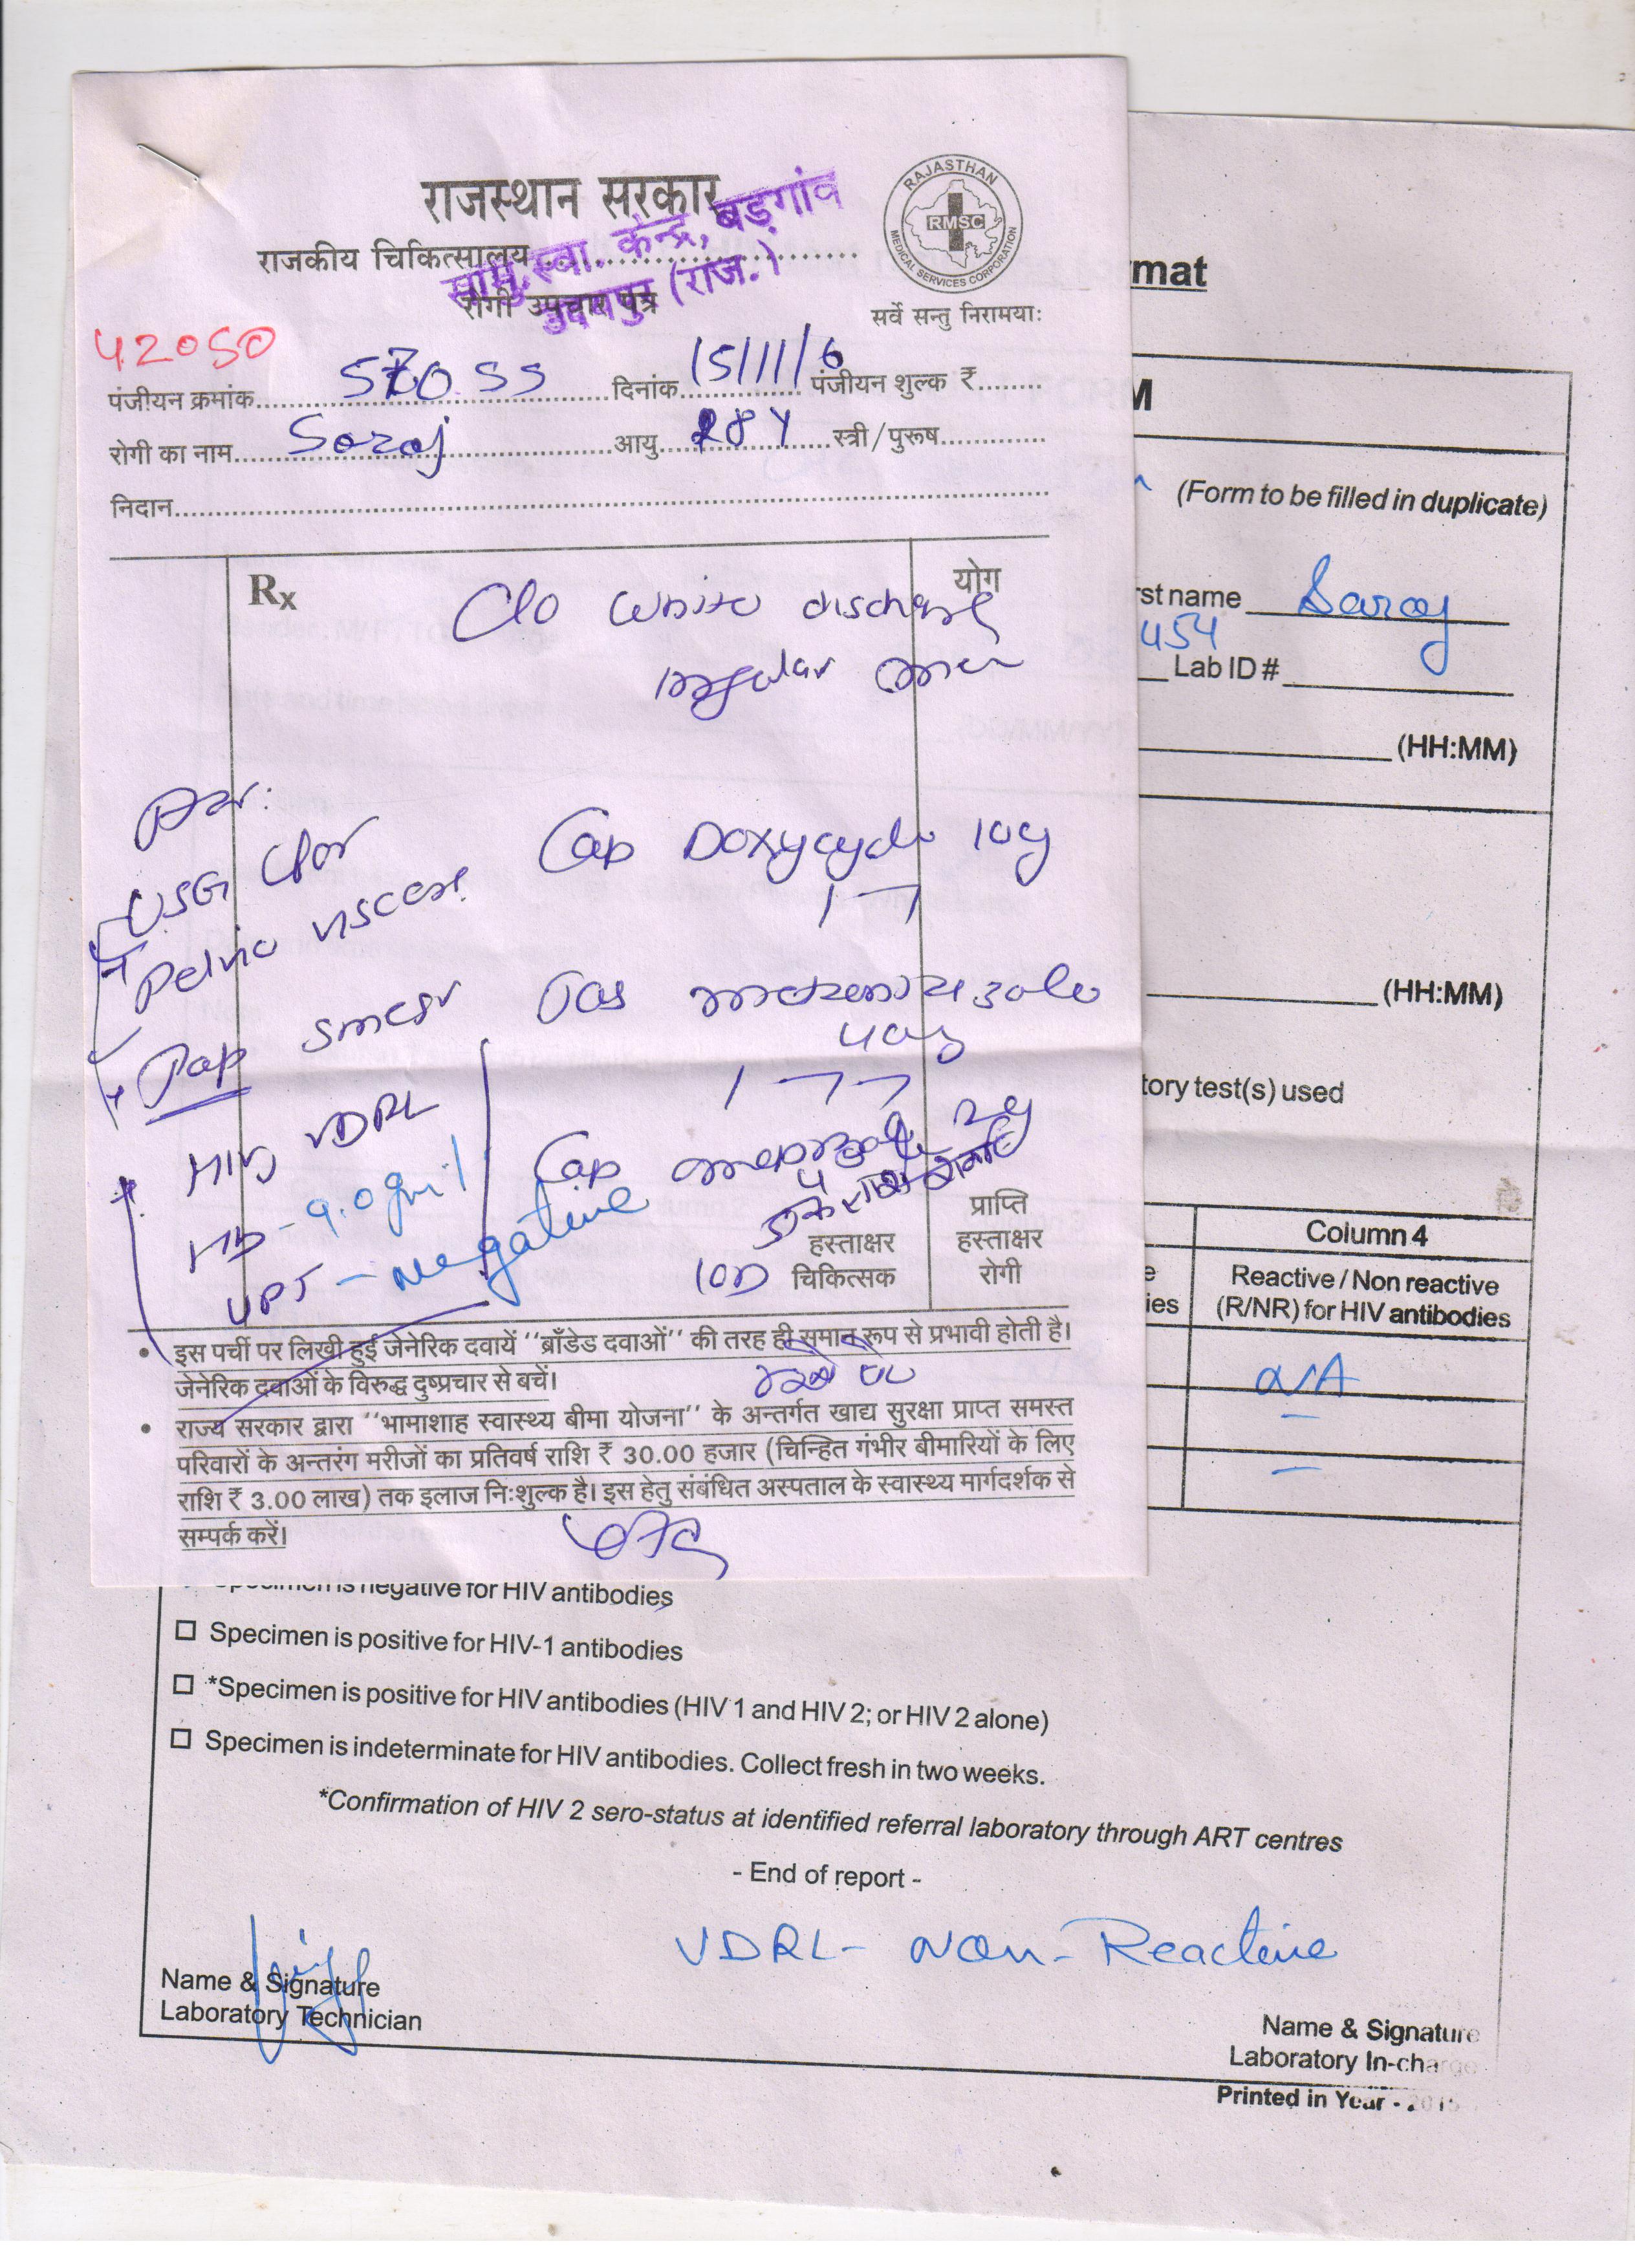 राजस्थान सरकार
राजकीय चिकित्सालय
सामु. स्वा. केन्द्र, बड़गांव
उदयपुर (राज.)
रोगी उपचार पत्र
RAJASTHAN
RMSC
MEDICAL SERVICES CORPORATION
सर्वे सन्तु निरामयाः
42050
पंजीयन क्रमांक दिनांक 15/11/6 पंजीयन शुल्क ₹
रोगी का नाम Saroj आयु 28 Y स्त्री/पुरूष
निदान
Rx
योग
C/o White discharge
USG for
Pelvic
Pap smear
HIV VDRL
Hb - 9.0gm
UPT - Negative
Cap Doxycyclin
1-7
Tab
हस्ताक्षर
चिकित्सक
प्राप्ति
हस्ताक्षर
रोगी
• इस पर्ची पर लिखी हुई जेनेरिक दवायें ''ब्राँडेड दवाओं'' की तरह ही समान रूप से प्रभावी होती है।
जेनेरिक दवाओं के विरुद्ध दुष्प्रचार से बचें।
• राज्य सरकार द्वारा ''भामाशाह स्वास्थ्य बीमा योजना'' के अन्तर्गत खाद्य सुरक्षा प्राप्त समस्त
परिवारों के अन्तरंग मरीजों का प्रतिवर्ष राशि ₹ 30.00 हजार (चिन्हित गंभीर बीमारियों के लिए
राशि ₹ 3.00 लाख) तक इलाज निःशुल्क है। इस हेतु संबंधित अस्पताल के स्वास्थ्य मार्गदर्शक से
सम्पर्क करें।
mat
M
(Form to be filled in duplicate)
rst name Saroj
454
Lab ID #
(HH:MM)
(HH:MM)
tory test(s) used
Column 4
e
ies
Reactive / Non reactive
(R/NR) for HIV antibodies
N/A
Specimen is negative for HIV antibodies
☐ Specimen is positive for HIV-1 antibodies
☐ *Specimen is positive for HIV antibodies (HIV 1 and HIV 2; or HIV 2 alone)
☐ Specimen is indeterminate for HIV antibodies. Collect fresh in two weeks.
*Confirmation of HIV 2 sero-status at identified referral laboratory through ART centres
- End of report -
VDRL - Non-Reactive
Name & Signature
Laboratory Technician
Name & Signature
Laboratory In-charge
Printed in Year -